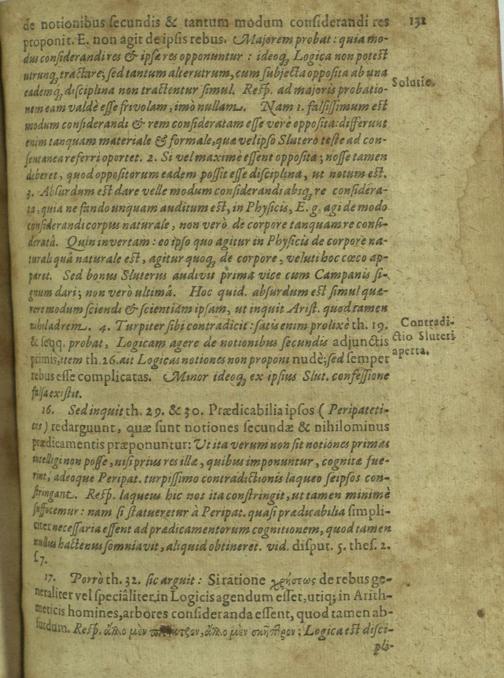 de notionibus secundis & tantum modum considerandi res
131
proponit. E. non agit de ipsis rebus. Majorem probat: quia mo-
dus considerandi res & ipsæ res opponuntur: ideoq, Logica non potest
utrunq, tractare; sed tantum alterutrum, cum subjecta opposita ab una
eademq, disciplina non tractentur simul. Resp. ad majoris probatio-
Solutio.
nem eam valdè esse frivolam, imò nullam. Nam 1. falsissimum est
modum considerandi & rem consideratam esse verè opposita: differunt
enim tanquam materiale & formale, quæ vel ipso Slutero teste ad con-
sentanea referri oportet. 2. Si vel maximè essent opposita; nosse tamen
deberet, quod oppositorum eadem possit esse disciplina, ut notum est.
3. Absurdum est dare velle modum considerandi absq, re considera-
ta, quia ne fando unquam auditum est, in Physicis, E. g. agi de modo
considerandi corpus naturale, non verò de corpore tanquam re consi-
deratâ. Quin invertam: eo ipso quo agitur in Physicis de corpore na-
turali quâ naturale est, agitur quoq, de corpore, velut i hoc cœco ap-
paret. Sed bonus Sluterus audivit primâ vice cum Campanis si-
gnum dari; non verò ultimâ. Hoc quid. absurdum est simul quæ-
rere modum sciendi & scientiam ipsam, ut inquit Arist. quod tamen
nihil ad rem. 4. Turpiter sibi contradicit: satis enim prolixè th. 19.
Contradi-
ctio Sluteri
aperta.
& seqq. probat, Logicam agere de notionibus secundis adjunctis
primis, item th. 26. ait Logicas notiones non proponi nudè; sed semper
rebus esse complicatas. Minor ideoq, ex ipsius Slut. confessione
falsa existit.
16. Sed inquit th. 29. & 30. Prædicabilia ipsos (Peripateti-
cos) redarguunt, quæ sunt notiones secundæ & nihilominus
prædicamentis præponuntur: Ut ita verum non sit notiones primas
intelligi non posse, nisi prius res illæ, quibus imponuntur, cognitæ fue-
rint, adeoque Peripat. turpissimo contradictionis laqueo seipsos con-
stringant. Resp. laqueus hic nos ita constringit, ut tamen minimè
suffocemur: nam si statueretur à Peripat. quasi prædicabilia simpli-
citer necessaria essent ad prædicamentorum cognitionem, quod tamen
nullus hactenus somniavit, aliquid obtineret. vid. disput. 5. thes. 2.
17. Porrò th. 32. sic arguit: Si ratione χρήσεως de rebus ge-
neraliter vel speciâliter in Logicis agendum esset, utiq; in Arith-
meticis homines, arbores consideranda essent, quod tamen ab-
surdum. Resp. Logica est disci-
pli-